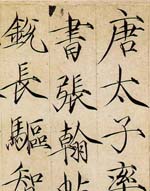 唐太子率
書張翰帖
銳長驅智